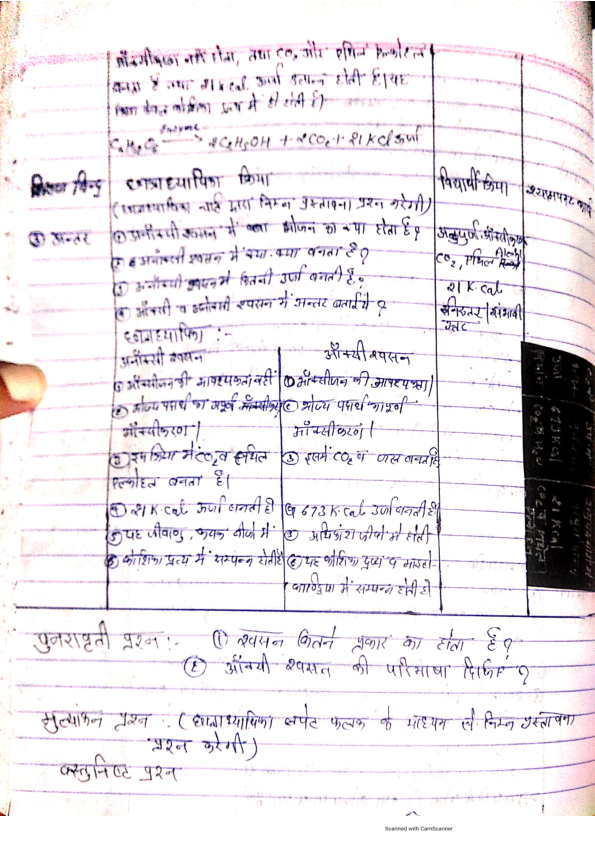 ऑक्सीकरण नहीं होता, तथा CO₂ और एथिल एल्कोहल
बनता है तथा 21 kcal. ऊर्जा उत्पन्न होती है। यह
क्रिया केवल कोशिका द्रव्य में ही होती है।
C₆H₁₂O₆ → 2C₂H₅OH + 2CO₂ + 21 KCal ऊर्जा
शिक्षण बिन्दु छात्राध्यापिका क्रिया विद्यार्थी क्रिया श्यामपट कार्य
(छात्राध्यापिका चार्ट द्वारा निम्न प्रस्तावना प्रश्न करेगी)
③ अन्तर ① अनॉक्सी श्वसन में भोजन का क्या होता है? अपूर्ण ऑक्सीकरण
② अनॉक्सी श्वसन में क्या-क्या बनता है? CO₂, एथिल
③ अनॉक्सी श्वसन में कितनी ऊर्जा बनती है? 21 K.cal
④ ऑक्सी व अनॉक्सी श्वसन में अन्तर बताईये? निरुत्तर/संभावी
उत्तर
छात्राध्यापिका :-
अनॉक्सी श्वसन ऑक्सी श्वसन
① ऑक्सीजन की आवश्यकता नहीं ① ऑक्सीजन की आवश्यकता।
② भोज्य पदार्थ का अपूर्ण ② भोज्य पदार्थ का पूर्ण
ऑक्सीकरण। ऑक्सीकरण।
③ इस क्रिया में CO₂ व इथिल ③ इसमें CO₂ व जल बनता है
एल्कोहल बनता है।
④ 21 K-Cal ऊर्जा बनती है। ④ 673 K.Cal ऊर्जा बनती है।
⑤ यह जीवाणु, कवक बीजों में ⑤ अधिकांश जीवों में होती
⑥ कोशिका द्रव्य में सम्पन्न होती है ⑥ यह कोशिका द्रव्य व माइटो-
काण्ड्रिया में सम्पन्न होती है।
पुनरावृती प्रश्न :- ① श्वसन कितने प्रकार का होता है?
② ऑक्सी श्वसन की परिभाषा दिजिए?
मुल्यांकन प्रश्न : (छात्राध्यापिका लपेट फलक के माध्यम से निम्न प्रस्तावना
प्रश्न करेगी)
वस्तुनिष्ट प्रश्न
Scanned with CamScanner